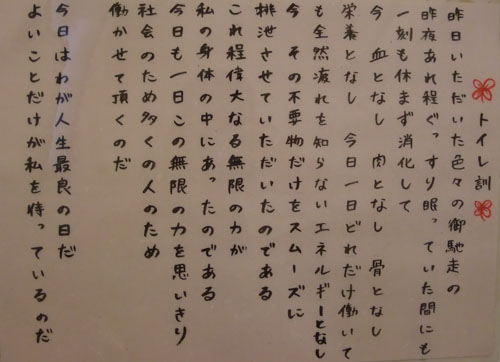 トイレ訓
昨日いただいた色々の御馳走の
昨夜あれ程ぐっすり眠っていた間にも
一刻も休まず消化して
今 血となし 肉となし 骨となし
栄養となし 今日一日どれだけ働いて
も全然疲れを知らないエネルギーとなし
今 その不要物だけをスムーズに
排泄させていただいたのである
これ程偉大なる無限の力が
私の身体の中にあったのである
今日も一日この無限の力を思いきり
社会のため多くの人のため
働かせて頂くのだ
今日はわが人生最良の日だ
よいことだけが私を待っているのだ